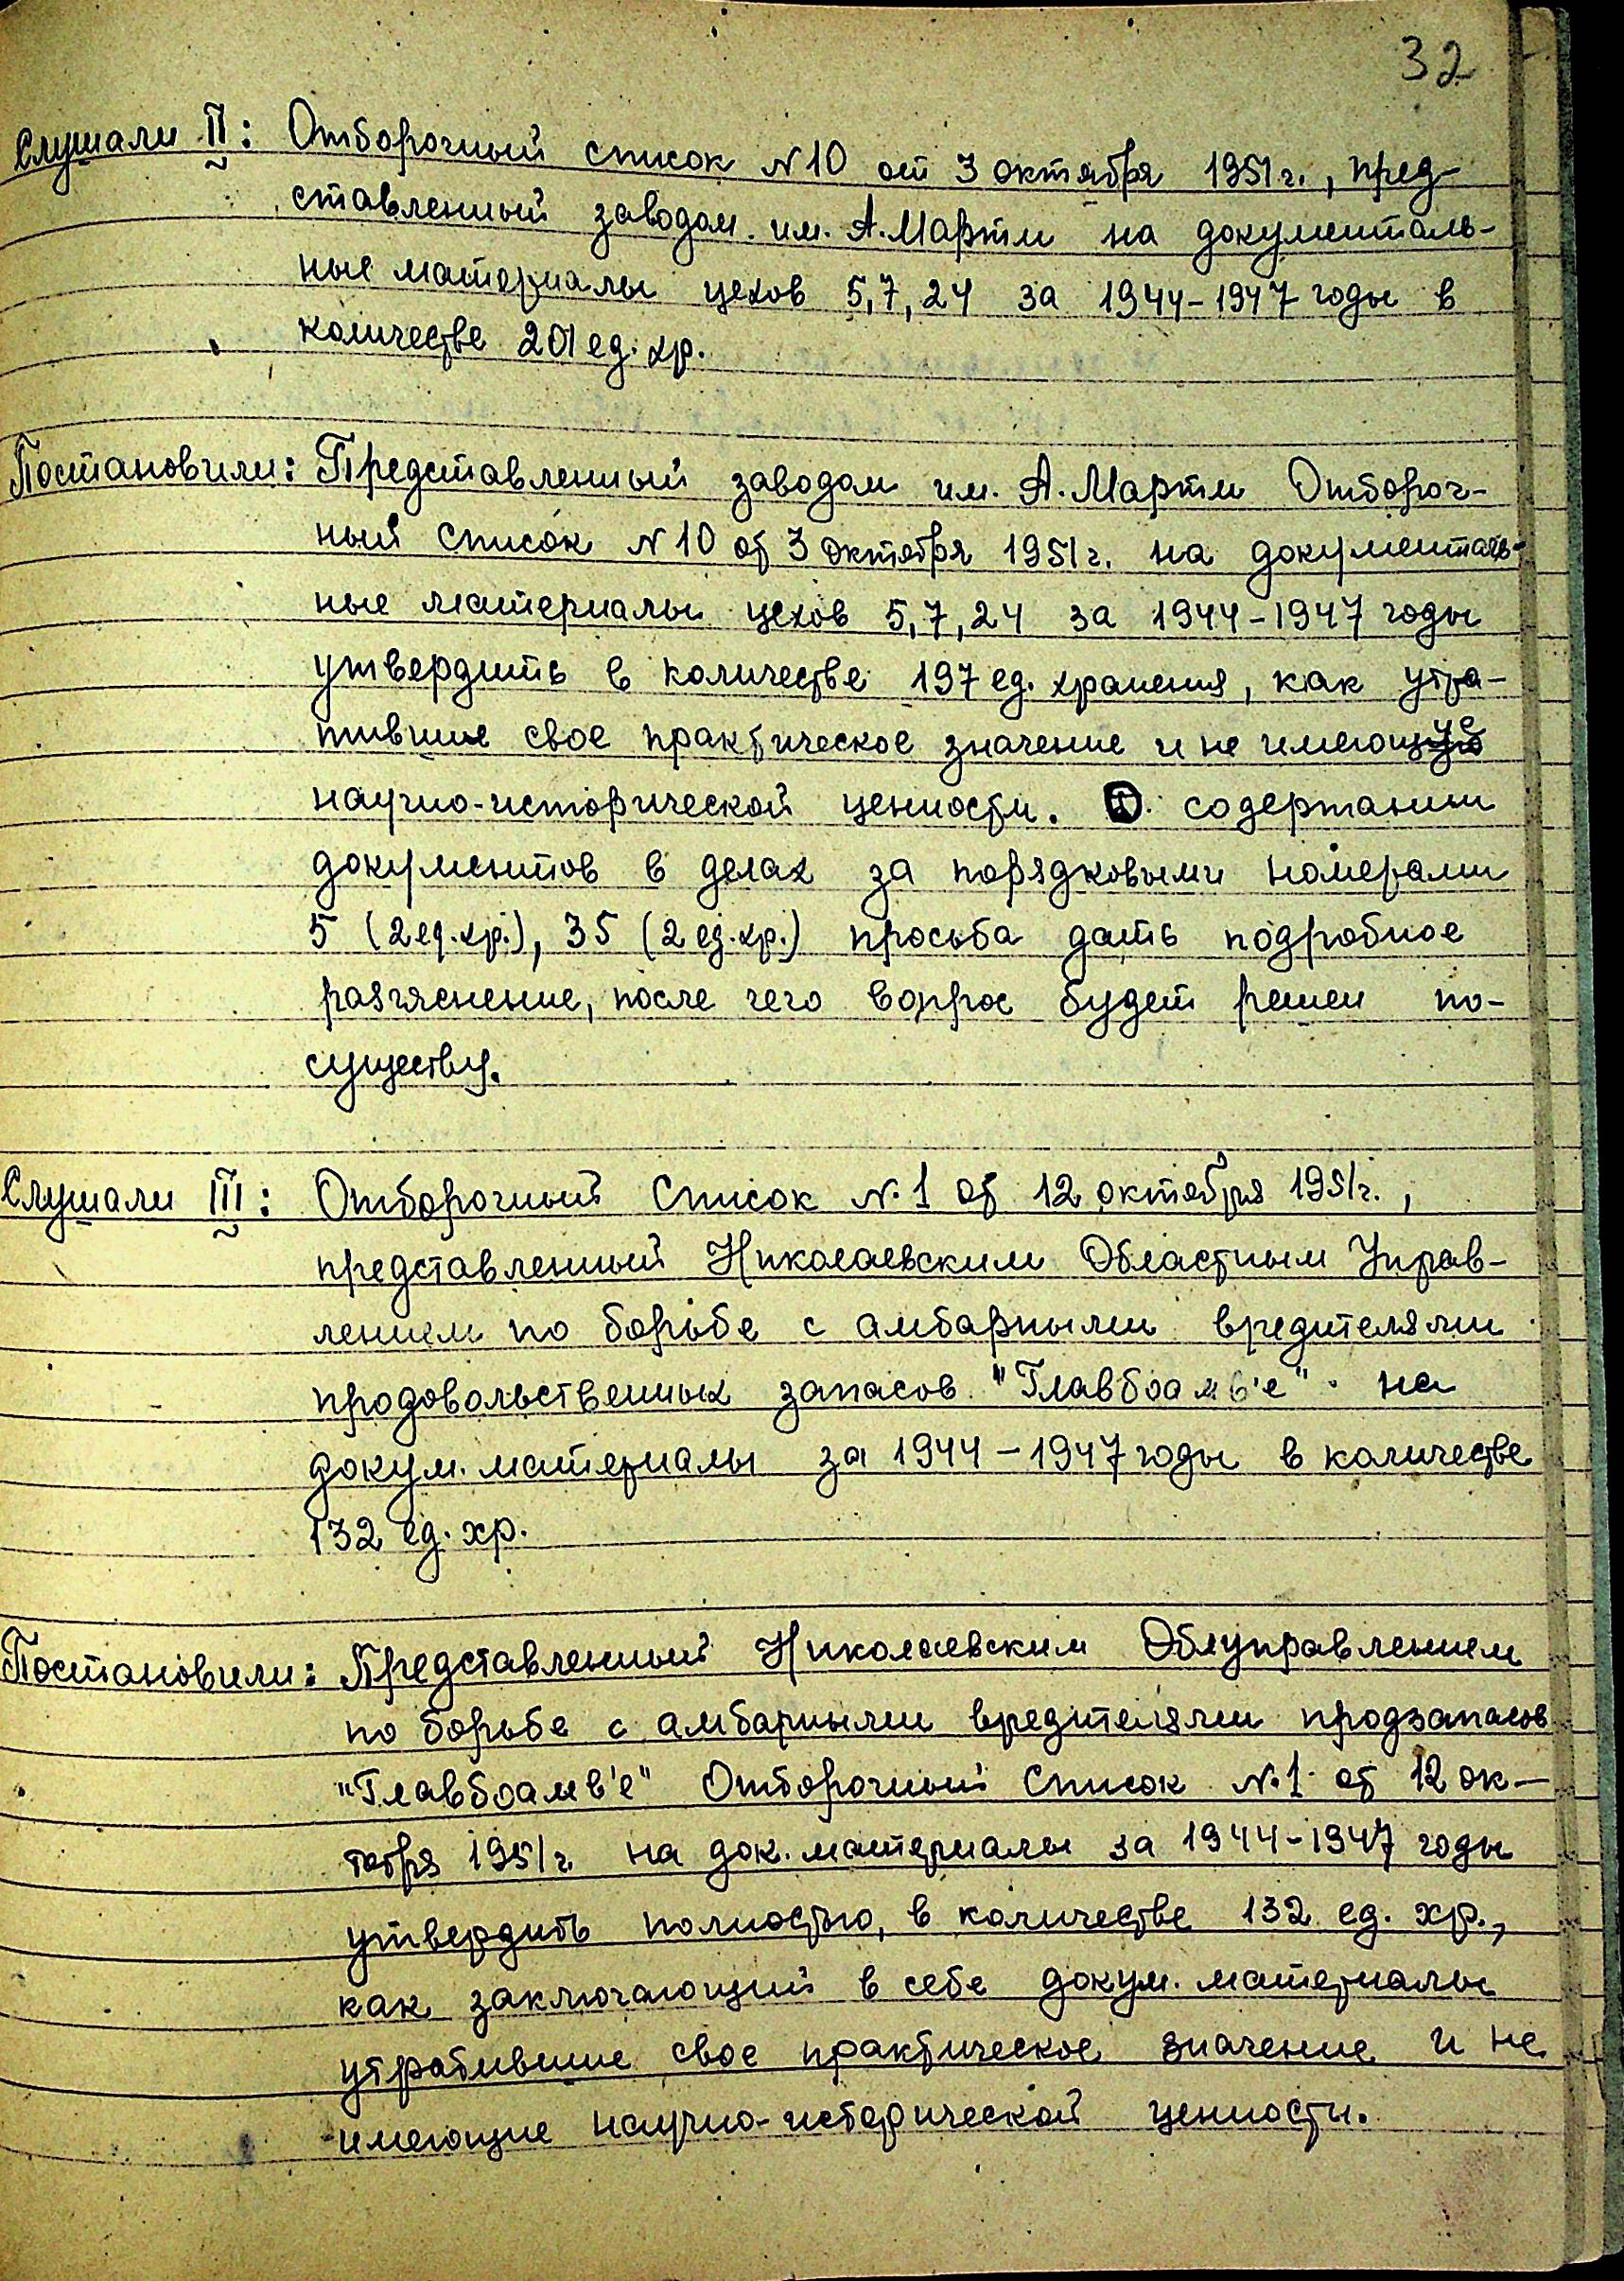 32
Слушали II: Отборочный список N10 от 3 октября 1951г., пред-
ставленный заводом им. А.Марти на документаль-
ные материалы цехов 5,7,24 за 1944-1947 годы в
количестве 201 ед. хр.
Постановили: Представленный заводом им. А.Марти Отбороч-
ный список N10 от 3 октября 1951г. на документаль-
ные материалы цехов 5,7,24 за 1944-1947 годы
утвердить в количестве 197 ед. хранения, как утра-
тившие свое практическое значение и не имеющие
научно-исторической ценности. О содержании
документов в делах за порядковыми номерами
5 (2 ед.хр.), 35 (2 ед.хр.) просьба дать подробное
разъяснение, после чего вопрос будет решен по-
существу.
Слушали III: Отборочный Список N.1 от 12 октября 1951г.,
представленный Николаевским Областным Управ-
лением по борьбе с амбарными вредителями
продовольственных запасов "Главбоамв'е" на
докум. материалы за 1944-1947 годы в количестве
132 ед. хр.
Постановили: Представленный Николаевским Облуправлением
по борьбе с амбарными вредителями продзапасов
"Главбоамв'е" Отборочный Список N.1 от 12 ок-
тября 1951г. на док. материалы за 1944-1947 годы
утвердить полностью, в количестве 132 ед. хр.,
как заключающий в себе докум. материалы
утратившие свое практическое значение и не
имеющие научно-исторической ценности.